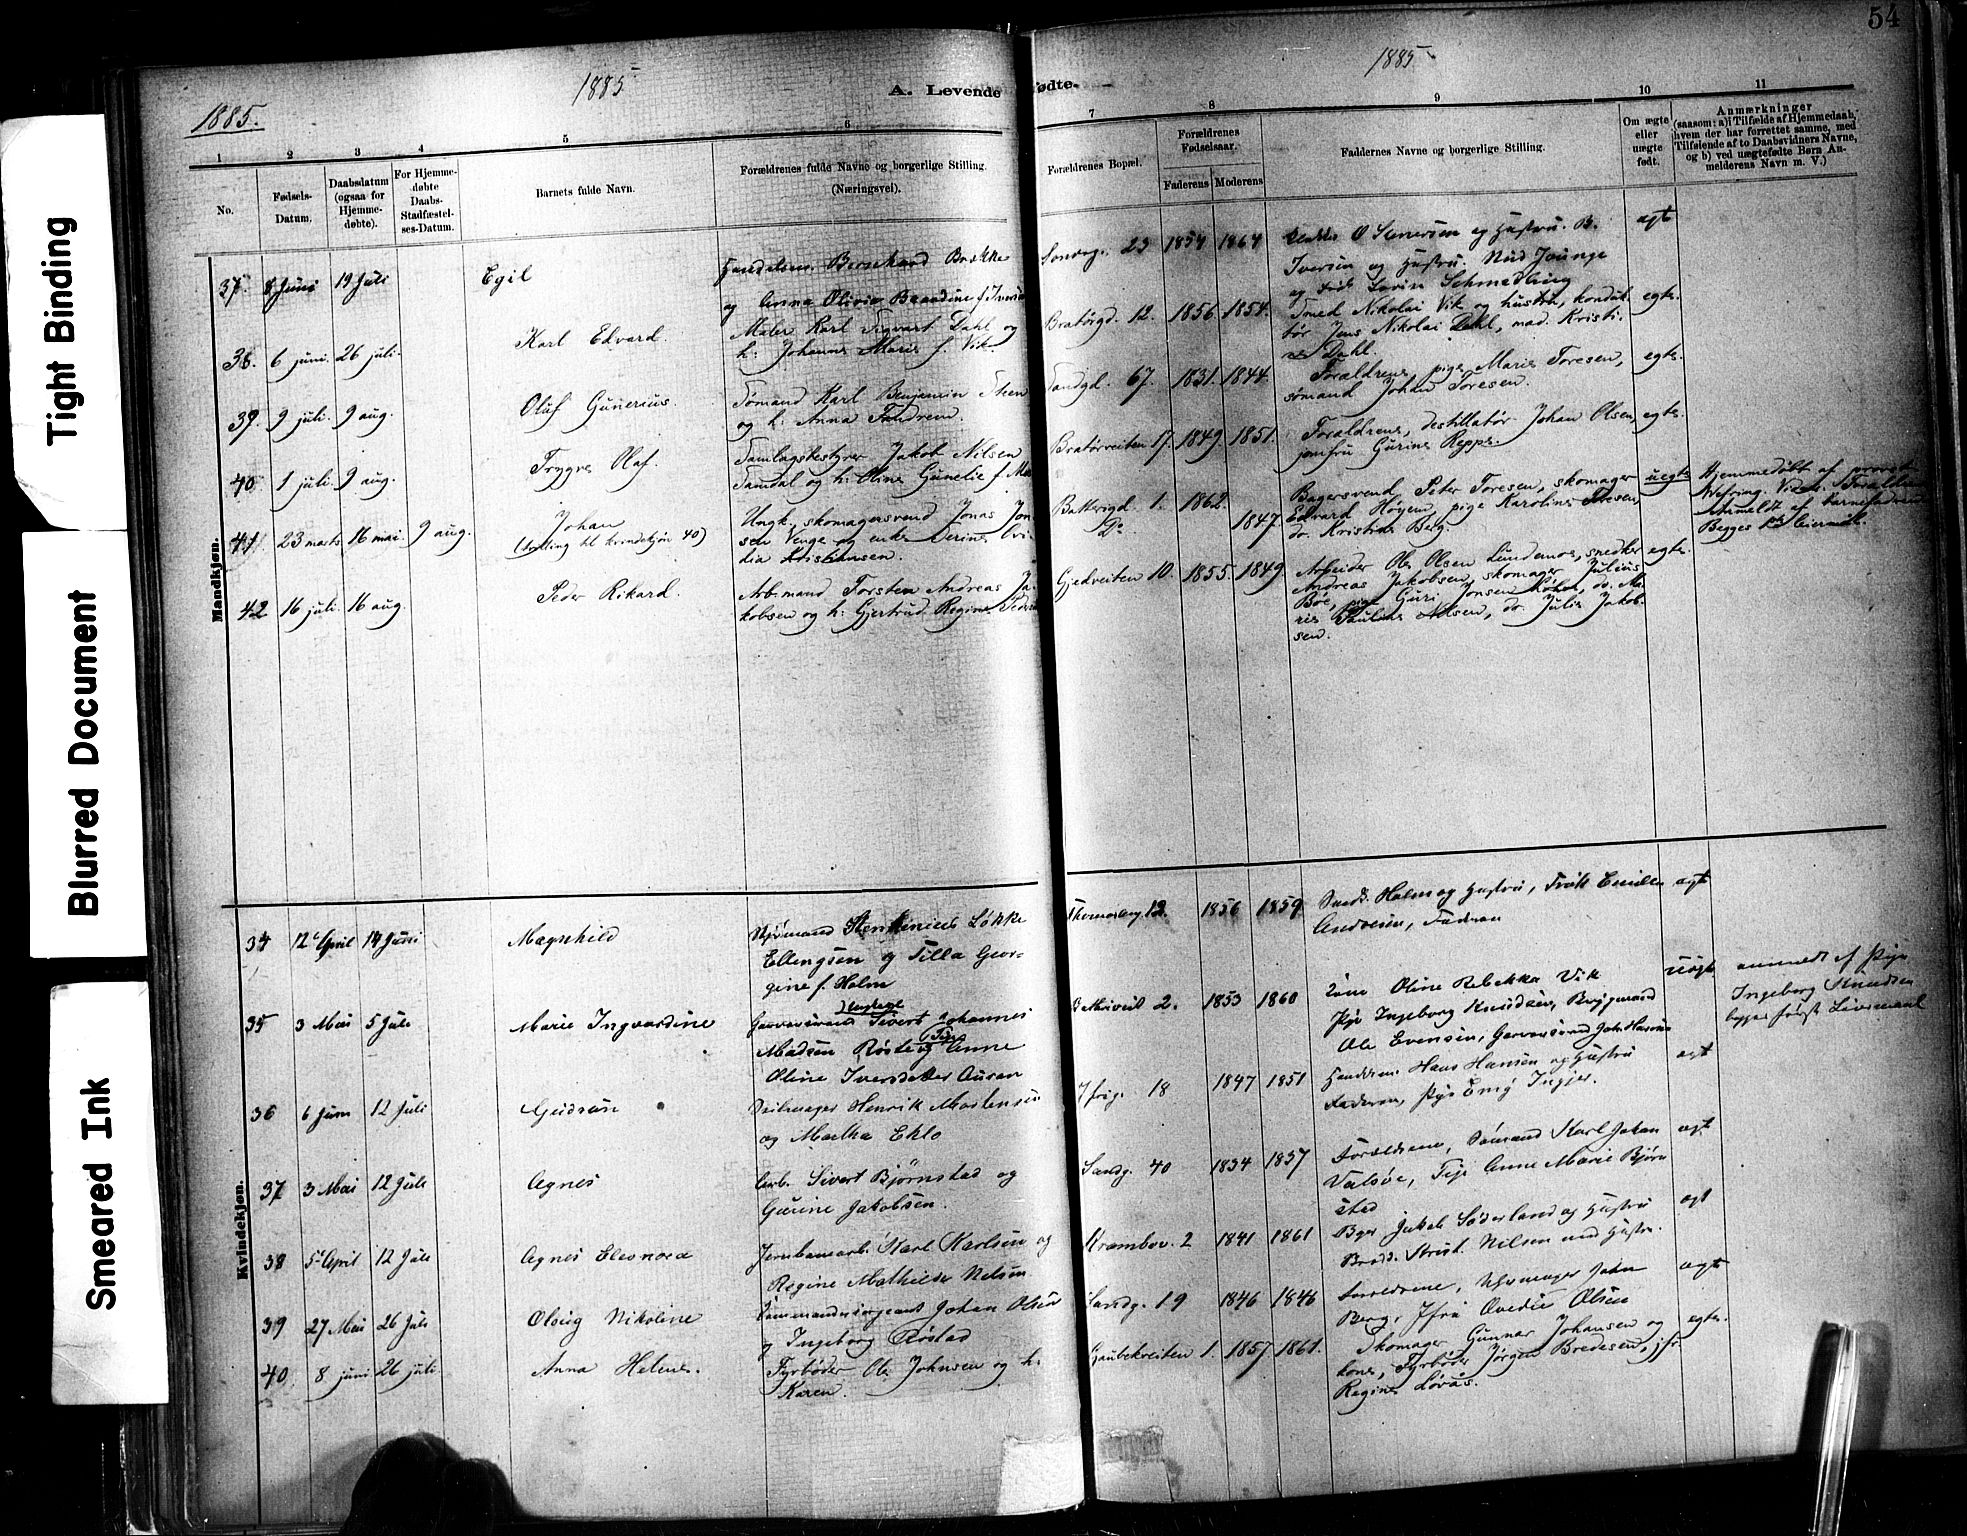 54
1885
1885
1885.
A. Levende
fødte.
1
2
3
4
5
6
7
8
9
10
11
No.
Fødsels-
Datum.
Daabsdatum
(ogsaa for
Hjemme-
døbte).
For Hjemme-
døbte
Daabs-
Stadfæstel-
ses-Datum.
Barnets fulde Navn.
Forældrenes fulde Navne og borgerlige Stilling.
(Næringsvei).
Forældrenes Bopæl.
Forældrenes
Fødselsaar.
Faderens
Moderens
Faddernes Navne og borgerlige Stilling.
Om ægte
eller
uægte
født.
Anmærkninger
(saasom: a) i Tilfælde af Hjemmedaab,
hvem der har forrettet samme, med
Tilføiende af to Daabsvidners Navne,
og b) ved uægtefødte Børn An-
melderens Navn m. V.)
Mandkjøn.
37. 8 Juni 19 Juli
Egil
Handelsm. Bernhard Brekke
og Anna Olivia Brandine f. Iversen
23 1854 1864
og Hustru. B.
Iversen og Hustru.
ægt
38. 6 juni. 26 juli.
Karl Edvard.
Maler Karl Sigvart Dahl og
h: Johanne Marie f. Vik.
Bratørgd. 12. 1856. 1854.
Smed Nikolai Vik og hustru, konduk-
tør Jens Nikolai Dahl, mad. Kristi-
ne Dahl.
egte.
39. 9 juli. 9 aug.
Oluf Gunerius.
Sømand Karl Benjamin Steen
og h: Anna Sandrem.
Sandgd. 67. 1831. 1844.
Forældrene, pige Marie Toresen,
sømand Johan Toresen.
egte.
40. 1 juli. 9 aug.
Trygve Olaf.
Samlagsbestyrer Jakob Nilsen
Samdal og h: Oline Gunelie f.
Bratørveiten 17. 1849. 1851.
Forældrene, destillatør Johan Olsen,
jomfru Gurine Reppe.
egte.
41 23 marts 16 mai. 9 aug.
Johan
(tvilling til kvindekjøn 40)
Ungk. skomagersvend Jonas Jon-
sen Venge og enke Serine Ovi-
dia Kristiansen.
Batterigd. 1. 1862.
Do 1847
Bagersvend Peter Toresen, skomager
Edvard Høyem, pige Karoline Toresen,
do. Kristine Berg.
uegte
Hjemmedøbt af provst
Anmeldt af barnefaderen
Begges 1ste leiermål.
42 16 juli. 16 aug.
Peder Rikard.
Arb.mand Torsten Andreas Ja-
kobsen og h: Gjertrud Regine
Gjedveiten 10. 1855. 1849
Arbeider Ole Olsen Lundemo, snedker
Andreas Jakobsen, skomager Julius
Bøe, pige Guri Jonsen do. Ma-
rie Pauline Nilsen, do. Julie Jakob-
sen.
egte.
Kvindekjøn.
34 12 April 14 Juni
Magnhild
Styrmand Løkke
Ellengsen og Tilla Geor-
gine f. Holm
12. 1856 1859
Holm og Hustru,
Andresen, Faderen
ægt
35 3 Mai 5 Juli
Marie Ingvardine
Ungkarl
Garversvend Sivert Johannes
Madsen Røste og Pige Anne
Oline Iversdatter Ausan
2. 1853 1860
Oline Rebekka Vik
Pige Ingeborg Knudsen, Bryggemand
Ole Evensen, Garversvend
uægt
anmeldt af Pige
Ingeborg Knudsen
begges første Leiermaal
36 6 Juni 12 Juli
Gudrun
Seilmager Henrik Mortensen
og Martha Eklo
18 1847 1851
Hans Hansen og Hustru
Faderen, Pige
ægt
37 3 Mai 12 Juli
Agnes
Arb. Sivert Bjørnstad og
Gurine Jakobsen.
Sandg. 40 1834 1837
Forældrene, Sømand Karl Johan
Valsøe, Pige Anne Marie Bjørn-
stad
ægt
38 5 April 12 Juli
Agnes Eleonora
Jernbanearb. Karl Karlsen og
Regine Mathilde Nilsen
Krambov. 2 1841 1861
Jakob Søderland og Hustru
Krist. Nilsen med Hustru.
ægt
39 27 Mai 26 Juli
Olaug Nikoline
Johan Olsen
og Ingeborg Røstad
Sandg. 19 1846 1846
Forældrene, John
Berg, Jfru Olsen
ægt
40 8 juni 26 juli.
Anna Helene.
Fyrbøder Ole Johnsen og h:
Karen.
Gaubekveiten 1. 1857 1861.
Skomager Gunnar Johansen og
kone, Fyrbøder Jørgen Bredesen, jfr.
Regine Løvås.
egte.
Tight Binding
Blurred Document
Smeared Ink